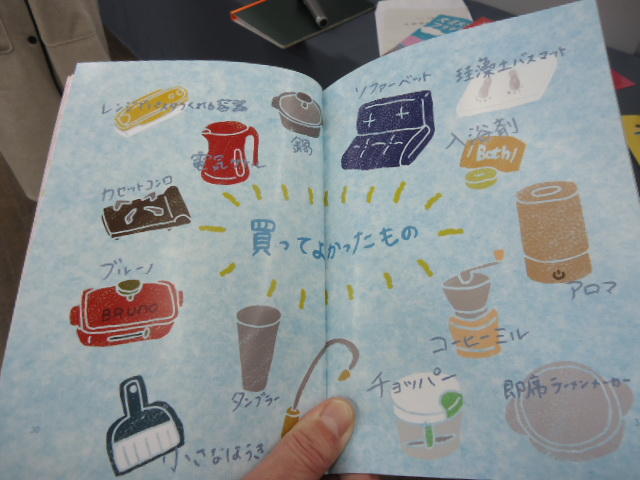 レンジでパスタつくれる容器
鍋
電気ケトル
カセットコンロ
ブルーノ
BRUNO
タンブラー
小さなほうき
買ってよかったもの
ソファーベット
珪藻土バスマット
入浴剤
Bath
アロマ
コーヒーミル
チョッパー
即席ラーメンメーカー
30